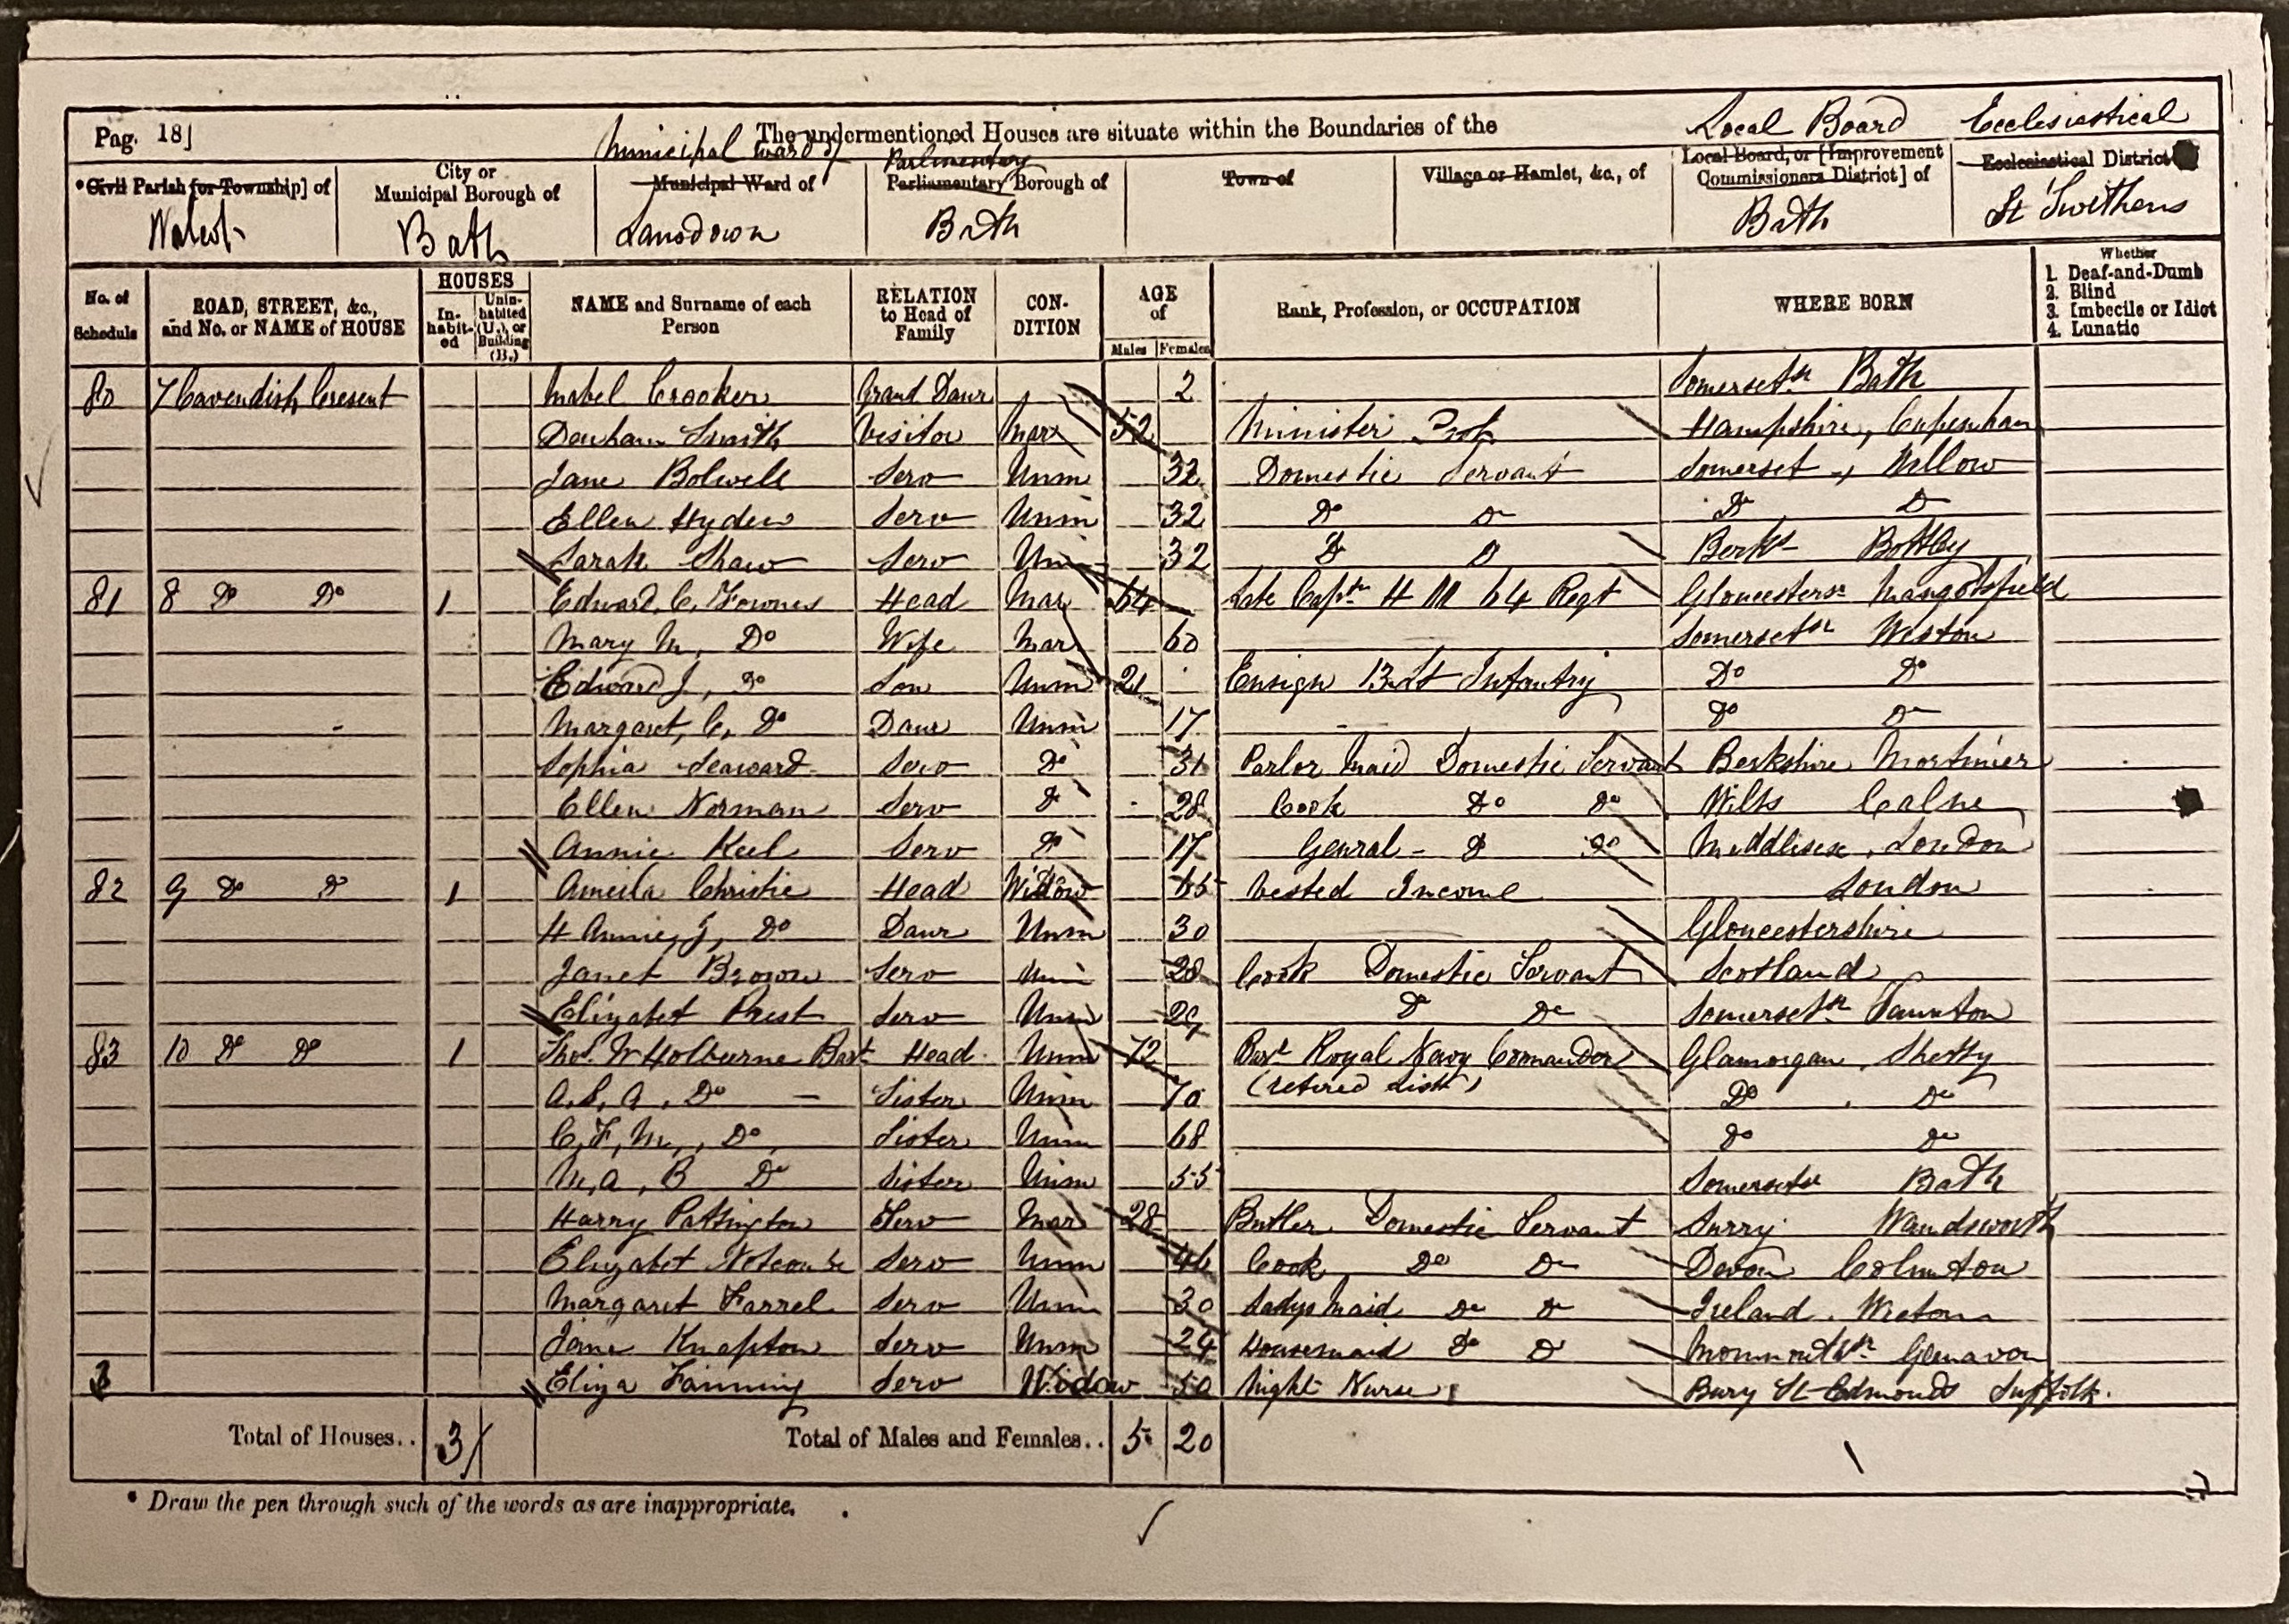 Pag. 18] The undermentioned Houses are situate within the Boundaries of the
Municipal Ward of Parlimentary Local Board Ecclesiastical
*Civil Parish [or Township] of City or Municipal Borough of Municipal Ward of Parliamentary Borough of Town of Village or Hamlet, &c., of Local Board, or [Improvement Commissioners District] of Ecclesiastical District
Walcot Bath Lansdown Bath Bath St Swithens
No. of Schedule ROAD, STREET, &c., and No. or NAME of HOUSE HOUSES Inhabited Uninhabited (U.), or Building (B.) NAME and Surname of each Person RELATION to Head of Family CONDITION AGE of Males Females Rank, Profession, or OCCUPATION WHERE BORN Whether 1. Deaf-and-Dumb 2. Blind 3. Imbecile or Idiot 4. Lunatic
80 7 Cavendish Cresent Mabel Crooker Grand Daur 2 Somersetsr Bath
Denham Smith Visitor Mar 52 Minister Hampshire, Cupenham
Jane Bolwell Serv Unm 32 Domestic Servant Somerset Mellow
Ellen Hyden Serv Unm 32 Do Do Do Do
Sarah Shaw Serv Unm 32 Do Do Berks Bottley
81 8 Do Do 1 Edward C. Fownes Head Mar 64 Late Captn H M 64 Regt Gloucestersr Mangotsfield
Mary M, Do Wife Mar 60 Somersetsr Weston
Edward J, Do Son Unm 21 Ensign 13 Lt Infantry Do Do
Margaret, C, Do Daur Unm 17 Do Do
Sophia Seaward Serv Do 31 Parlor Maid Domestic Servant Berkshire Mortimer
Ellen Norman Serv Do 28 Cook Do Do Wilts Calne
Annie Keel Serv Do 17 Genral Do Do Middlesex, London
82 9 Do Do 1 Ameila Christie Head Widow 65 Vested Income London
H Annie, J, Do Daur Unm 30 Gloucestershire
Janet Brown Serv Unm 28 Cook Domestic Servant Scotland
Elizabet Prest Serv Unm 29 Do Do Somersetsr Taunton
83 10 Do Do 1 Thos. W Holburne Bart Head Unm 72 Bart Royal Navy Comander Glamorgan
(retired List)
A, S, A, Do Sister Unm 70 Do Do
C, F, M, Do Sister Unm 68 Do Do
M, A, B Do Sister Unm 55 Somersetsr Bath
Harry Pattington Serv Mar 28 Butler Domestic Servant Surry Wandsworth
Elizabet Serv Unm 46 Cook Do Do Devon Columton
Margaret Farrel Serv Unm 30 Ladys Maid Do Do Ireland
Jane Knapton Serv Unm 24 Housemaid Do Do Monmouthsr
Eliza Fanning Serv Widow 50 Night Nurse Bury St Edmonds Suffolk.
Total of Houses.. 3 Total of Males and Females.. 5 20
* Draw the pen through such of the words as are inappropriate.